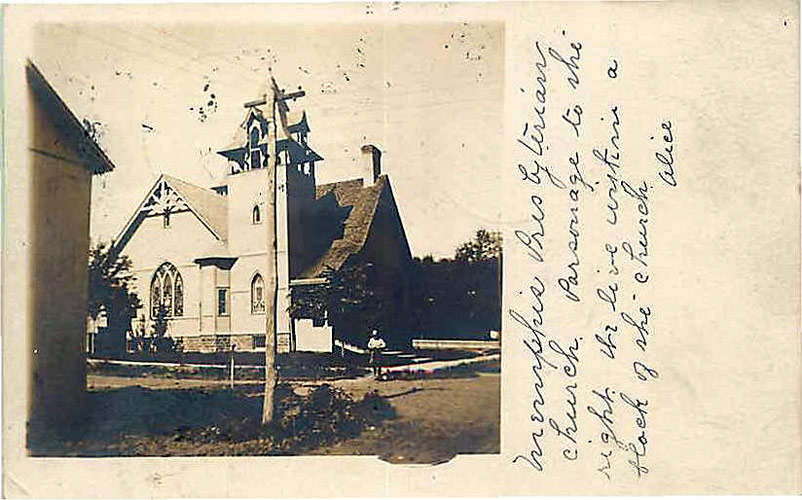 Memphis Presbyterian
church. Parsonage to the
right. We live within a
block of the church.
Alice